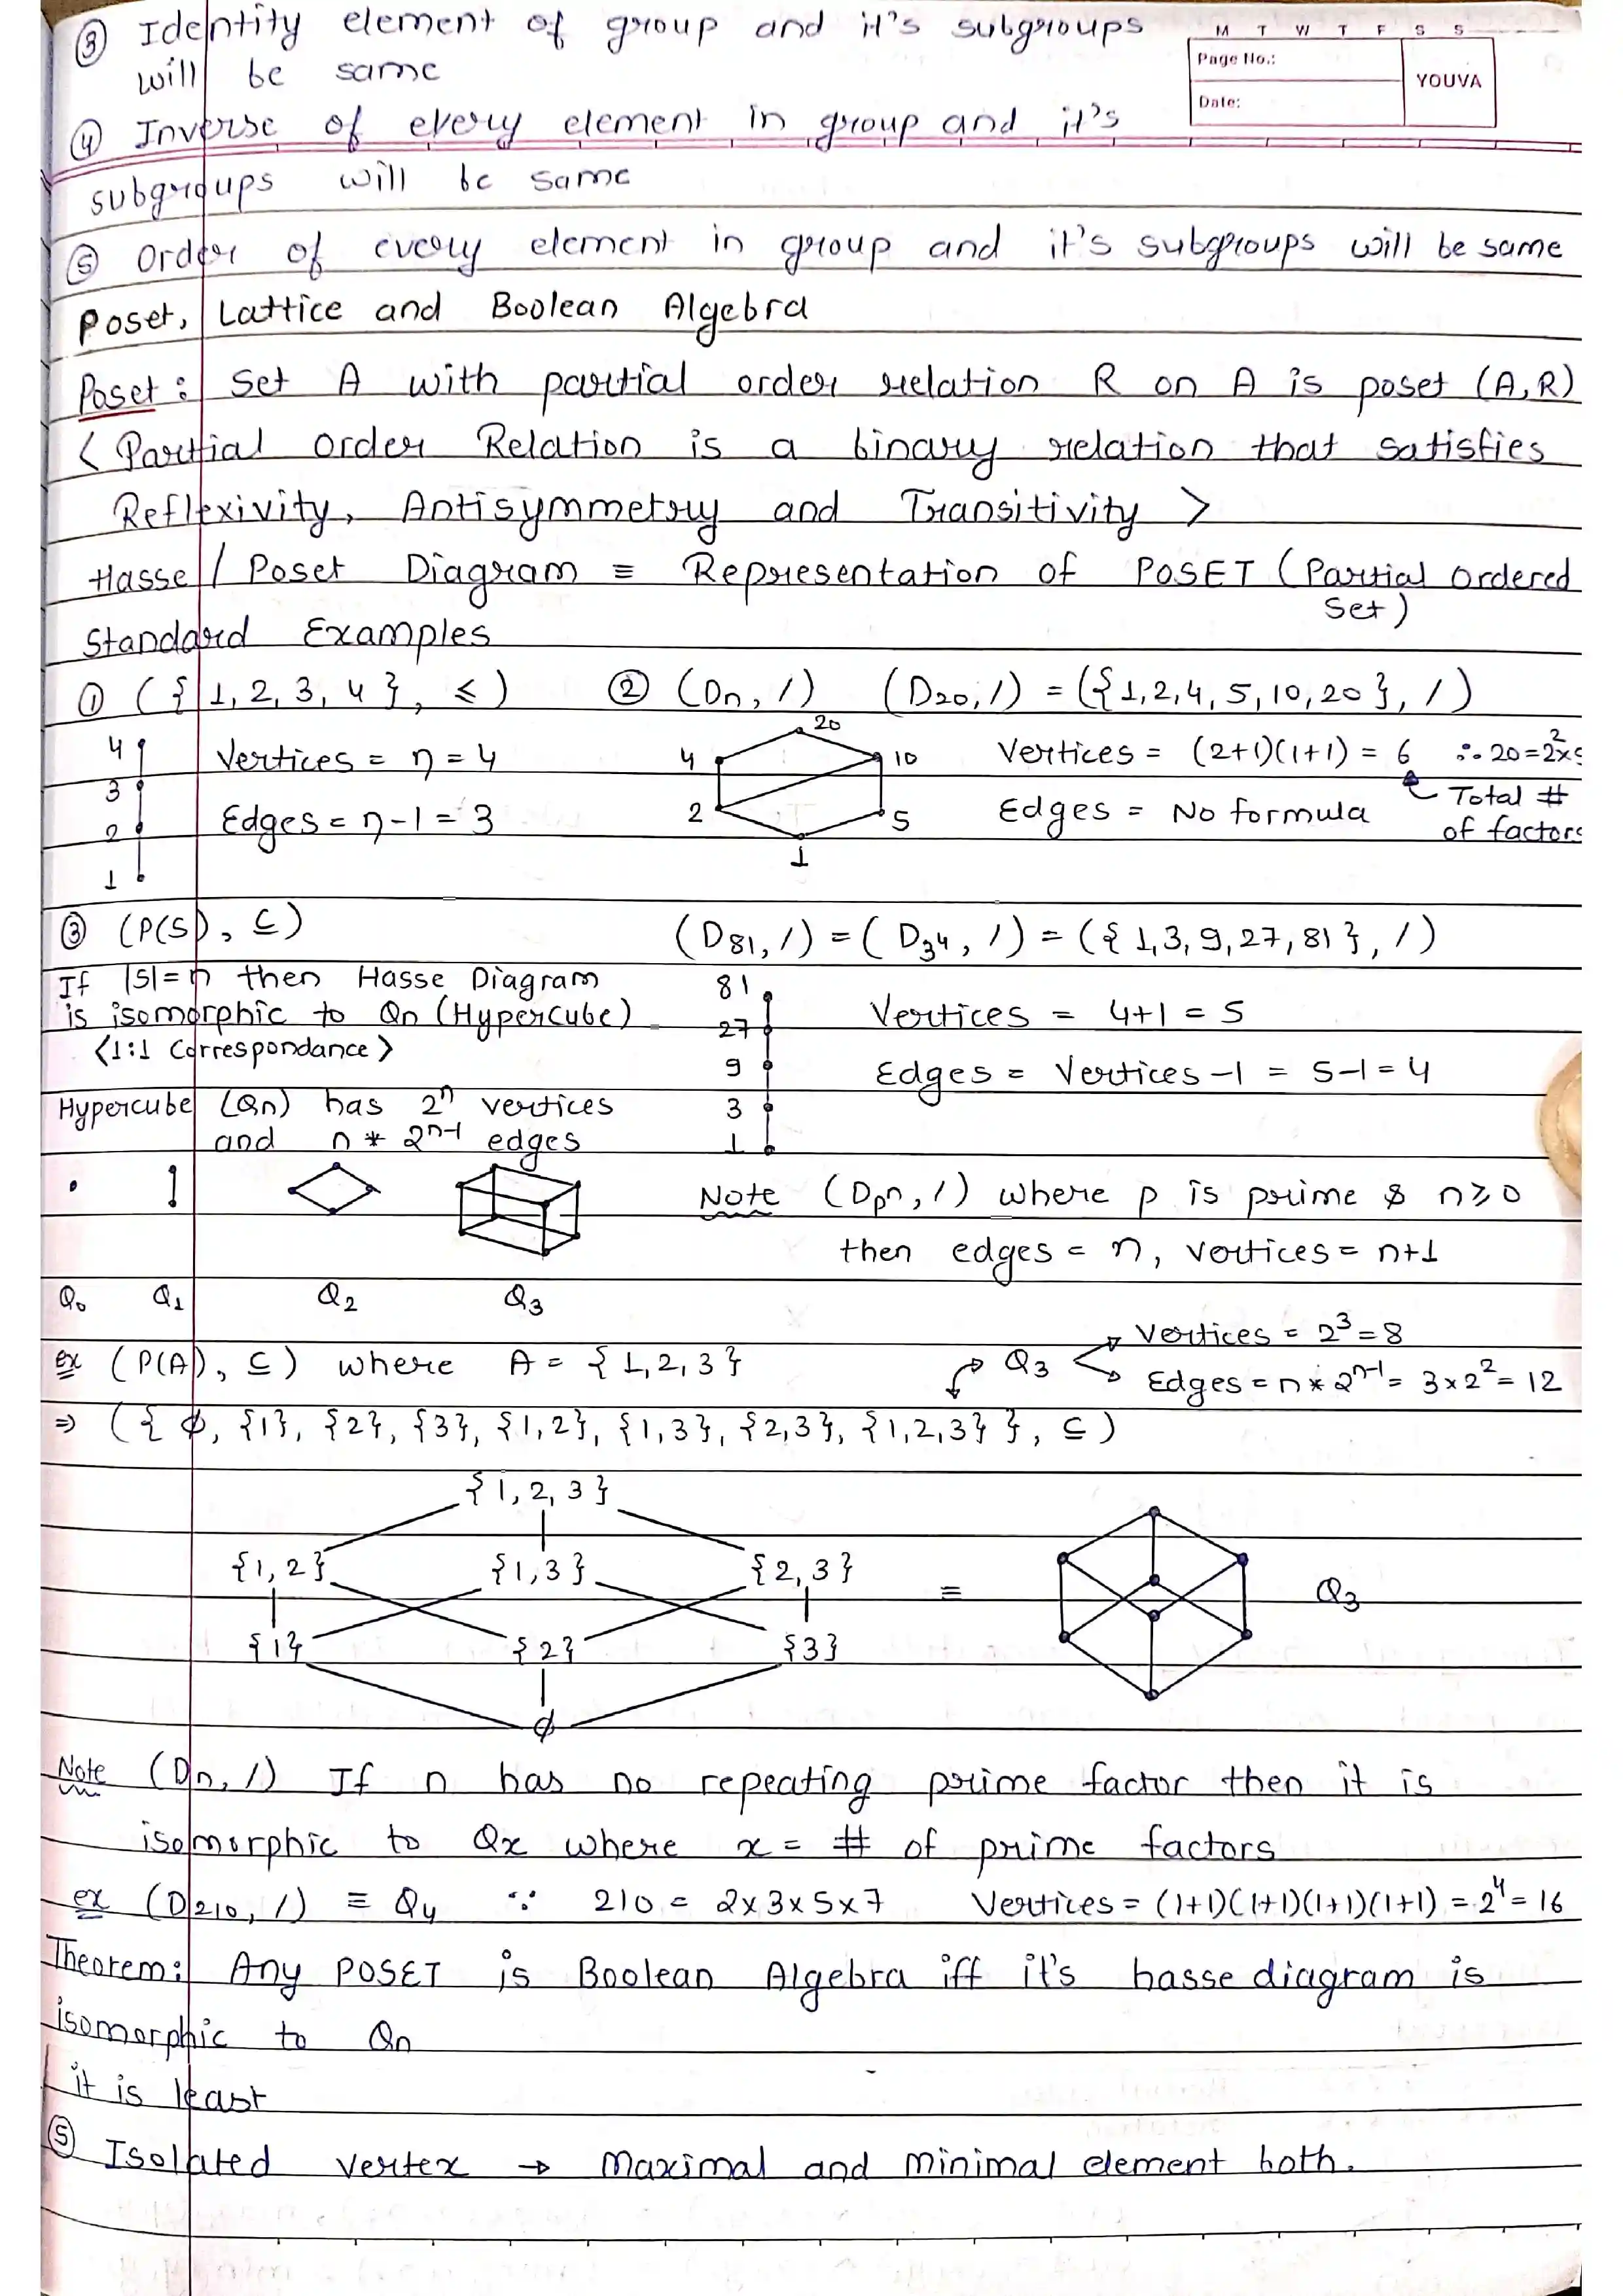 ③ Identity element of group and it's subgroups
will be same
M T W T F S S
Page No.:
Date:
YOUVA
④ Inverse of every element in group and it's
subgroups will be same
⑤ Order of every element in group and it's subgroups will be same
Poset, Lattice and Boolean Algebra
Poset : Set A with partial order relation R on A is poset (A,R)
< Partial order Relation is a binary relation that satisfies
Reflexivity, Antisymmetry and Transitivity >
Hasse / Poset Diagram ≡ Representation of POSET (Partial ordered
Set)
Standard Examples
① ({1, 2, 3, 4}, ≤) ② (Dn, /) (D20, /) = ({1,2,4,5,10,20}, /)
4
3
2
1
Vertices = n = 4
Edges = n-1 = 3
20
4 10
2 5
1
Vertices = (2+1)(1+1) = 6 ∴ 20=2²×5
Edges = No formula
Total #
of factors
③ (P(S), ⊆)
If |S|=n then Hasse Diagram
is isomorphic to Qn (Hypercube)
<1:1 Correspondance>
Hypercube (Qn) has 2ⁿ vertices
and n * 2ⁿ⁻¹ edges
Q0 Q1 Q2 Q3
(D81, /) = (D3⁴, /) = ({1,3,9,27,81}, /)
81
27
9
3
1
Vertices = 4+1 = 5
Edges = Vertices -1 = 5-1 = 4
Note (Dpⁿ, /) where p is prime & n≥0
then edges = n, vertices = n+1
ex (P(A), ⊆) where A = {1,2,3}
Q3
Vertices = 2³ = 8
Edges = n * 2ⁿ⁻¹ = 3×2² = 12
⇒ ({ϕ, {1}, {2}, {3}, {1,2}, {1,3}, {2,3}, {1,2,3}}, ⊆)
{1, 2, 3}
{1, 2} {1,3} {2,3}
≡ Q3
{1} {2} {3}
ϕ
Note (Dn, /) If n has no repeating prime factor then it is
isomorphic to Qx where x = # of prime factors
ex (D210, /) ≡ Q4 ∵ 210 = 2×3×5×7 Vertices = (1+1)(1+1)(1+1)(1+1) = 2⁴ = 16
Theorem: Any POSET is Boolean Algebra iff it's hasse diagram is
isomorphic to Qn
it is least
⑤ Isolated vertex → Maximal and Minimal element both.